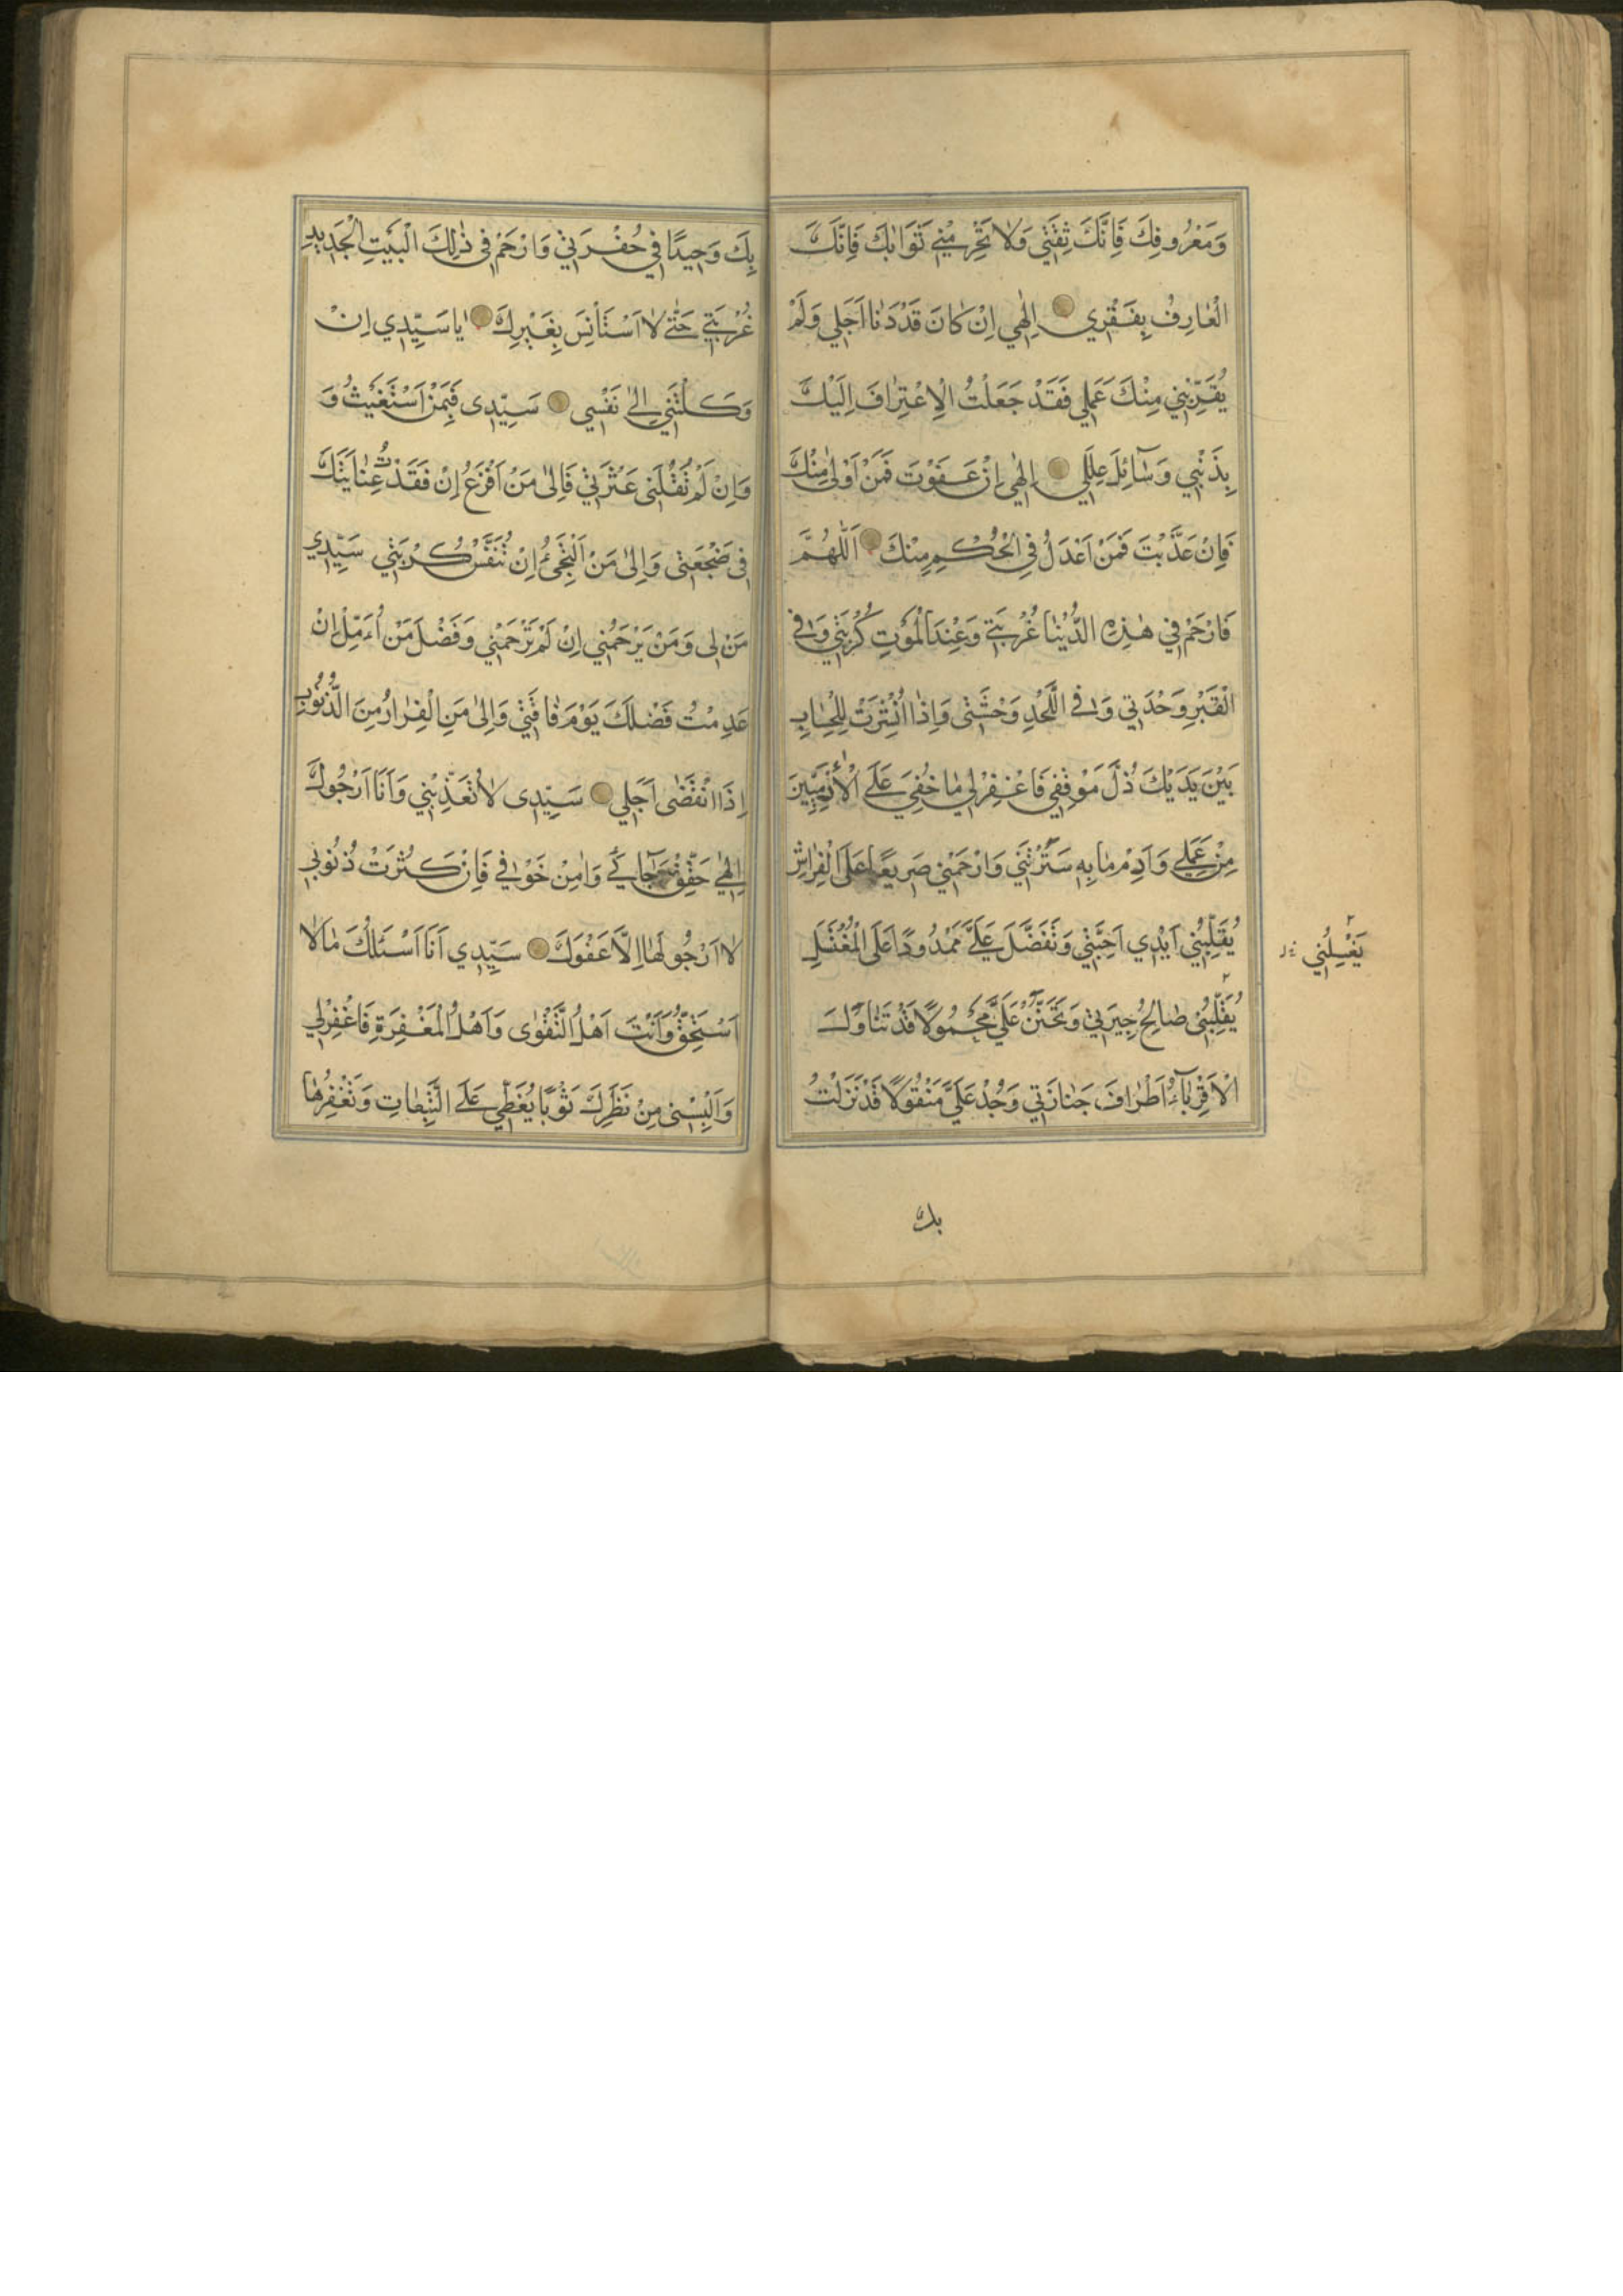 وَمَعْرُوفِكَ فَاِنَّكَ ثِقَتِي وَلَا تَحْرِمْنِي ثَوَابَكَ فَاِنَّكَ
الْعَارِفُ بِفَقْرِي اِلٰهِي اِنْ كَانَ قَدْ دَنَا اَجَلِي وَلَمْ
يُقَرِّبْنِي مِنْكَ عَمَلِي فَقَدْ جَعَلْتُ الْاِعْتِرَافَ اِلَيْكَ
بِذَنْبِي وَسَآئِلَ عِلَلِي اِلٰهِي اِنْ عَفَوْتَ فَمَنْ اَوْلٰى مِنْكَ
فَاِنْ عَذَّبْتَ فَمَنْ اَعْدَلُ فِي الْحُكْمِ مِنْكَ اَللّٰهُمَّ
فَارْحَمْ فِي هٰذِهِ الدُّنْيَا غُرْبَتِي وَعِنْدَ الْمَوْتِ كُرْبَتِي وَفِي
الْقَبْرِ وَحْدَتِي وَفِي اللَّحْدِ وَحْشَتِي وَاِذَا انْشِرْتُ لِلْحِسَابِ
بَيْنَ يَدَيْكَ ذُلَّ مَوْقِفِي فَاغْفِرْ لِي مَا خَفِيَ عَلَى الْاٰدَمِيِّينَ
مِنْ عَمَلِي وَاَدِمْ مَا بِهِ سَتَرْتَنِي وَارْحَمْنِي صَرِيعًا عَلَى الْفِرَاشِ
يُقَلِّبُنِي اَيْدِي اَحِبَّتِي وَتَفَضَّلْ عَلَيَّ مَمْدُودًا عَلَى الْمُغْتَسَلِ
يَغْسِلُنِي
يُقَلِّبُنِي صَالِحُ جِيرَتِي وَتَحَنَّنْ عَلَيَّ مَحْمُولًا قَدْ تَنَاوَلَ
الْاَقْرِبَآءُ اَطْرَافَ جَنَازَتِي وَجُدْ عَلَيَّ مَنْقُولًا قَدْ نَزَلْتُ
بك
بِكَ وَحِيدًا فِي حُفْرَتِي وَارْحَمْ فِي ذٰلِكَ الْبَيْتِ الْجَدِيدِ
غُرْبَتِي حَتّٰى لَا اَسْتَاْنِسَ بِغَيْرِكَ يَا سَيِّدِي اِنْ
وَكَلْتَنِي اِلٰى نَفْسِي سَيِّدِي فَبِمَنْ اَسْتَغِيثُ وَ
وَاِنْ لَمْ تُقِلْنِي عَثْرَتِي فَاِلٰى مَنْ اَفْزَعُ اِنْ فَقَدْتُ عِنَايَتَكَ
فِي ضَجْعَتِي وَاِلٰى مَنْ اَلْتَجِئُ اِنْ تُنَفِّسْ كُرْبَتِي سَيِّدِي
مَنْ لِي وَمَنْ يَرْحَمُنِي اِنْ لَمْ تَرْحَمْنِي وَفَضْلَ مَنْ اُءَمِّلُ اِنْ
عَدِمْتُ فَضْلَكَ يَوْمَ فَاقَتِي وَاِلٰى مَنِ الْفِرَارُ مِنَ الذُّنُوبِ
اِذَا انْقَضٰى اَجَلِي سَيِّدِي لَا تُعَذِّبْنِي وَاَنَا اَرْجُوكَ
اِلٰهِي حَقِّقْ رَجَائِي وَاٰمِنْ خَوْفِي فَاِنَّ كَثْرَتْ ذُنُوبِي
لَا اَرْجُو لَهَا اِلَّا عَفْوَكَ سَيِّدِي اَنَا اَسْئَلُكَ مَا لَا
اَسْتَحِقُّ وَاَنْتَ اَهْلُ التَّقْوٰى وَاَهْلُ الْمَغْفِرَةِ فَاغْفِرْ لِي
وَاَلْبِسْنِي مِنْ نَظَرِكَ ثَوْبًا يُغَطِّي عَلَى التَّبِعَاتِ وَتَغْفِرُهَا